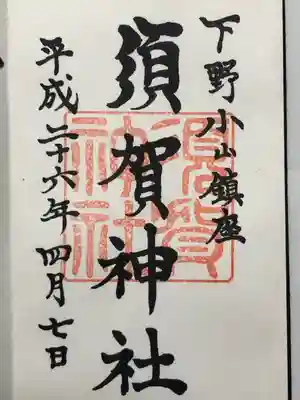 下野小山鎮座
須賀神社
平成二十六年四月七日
須賀
神社